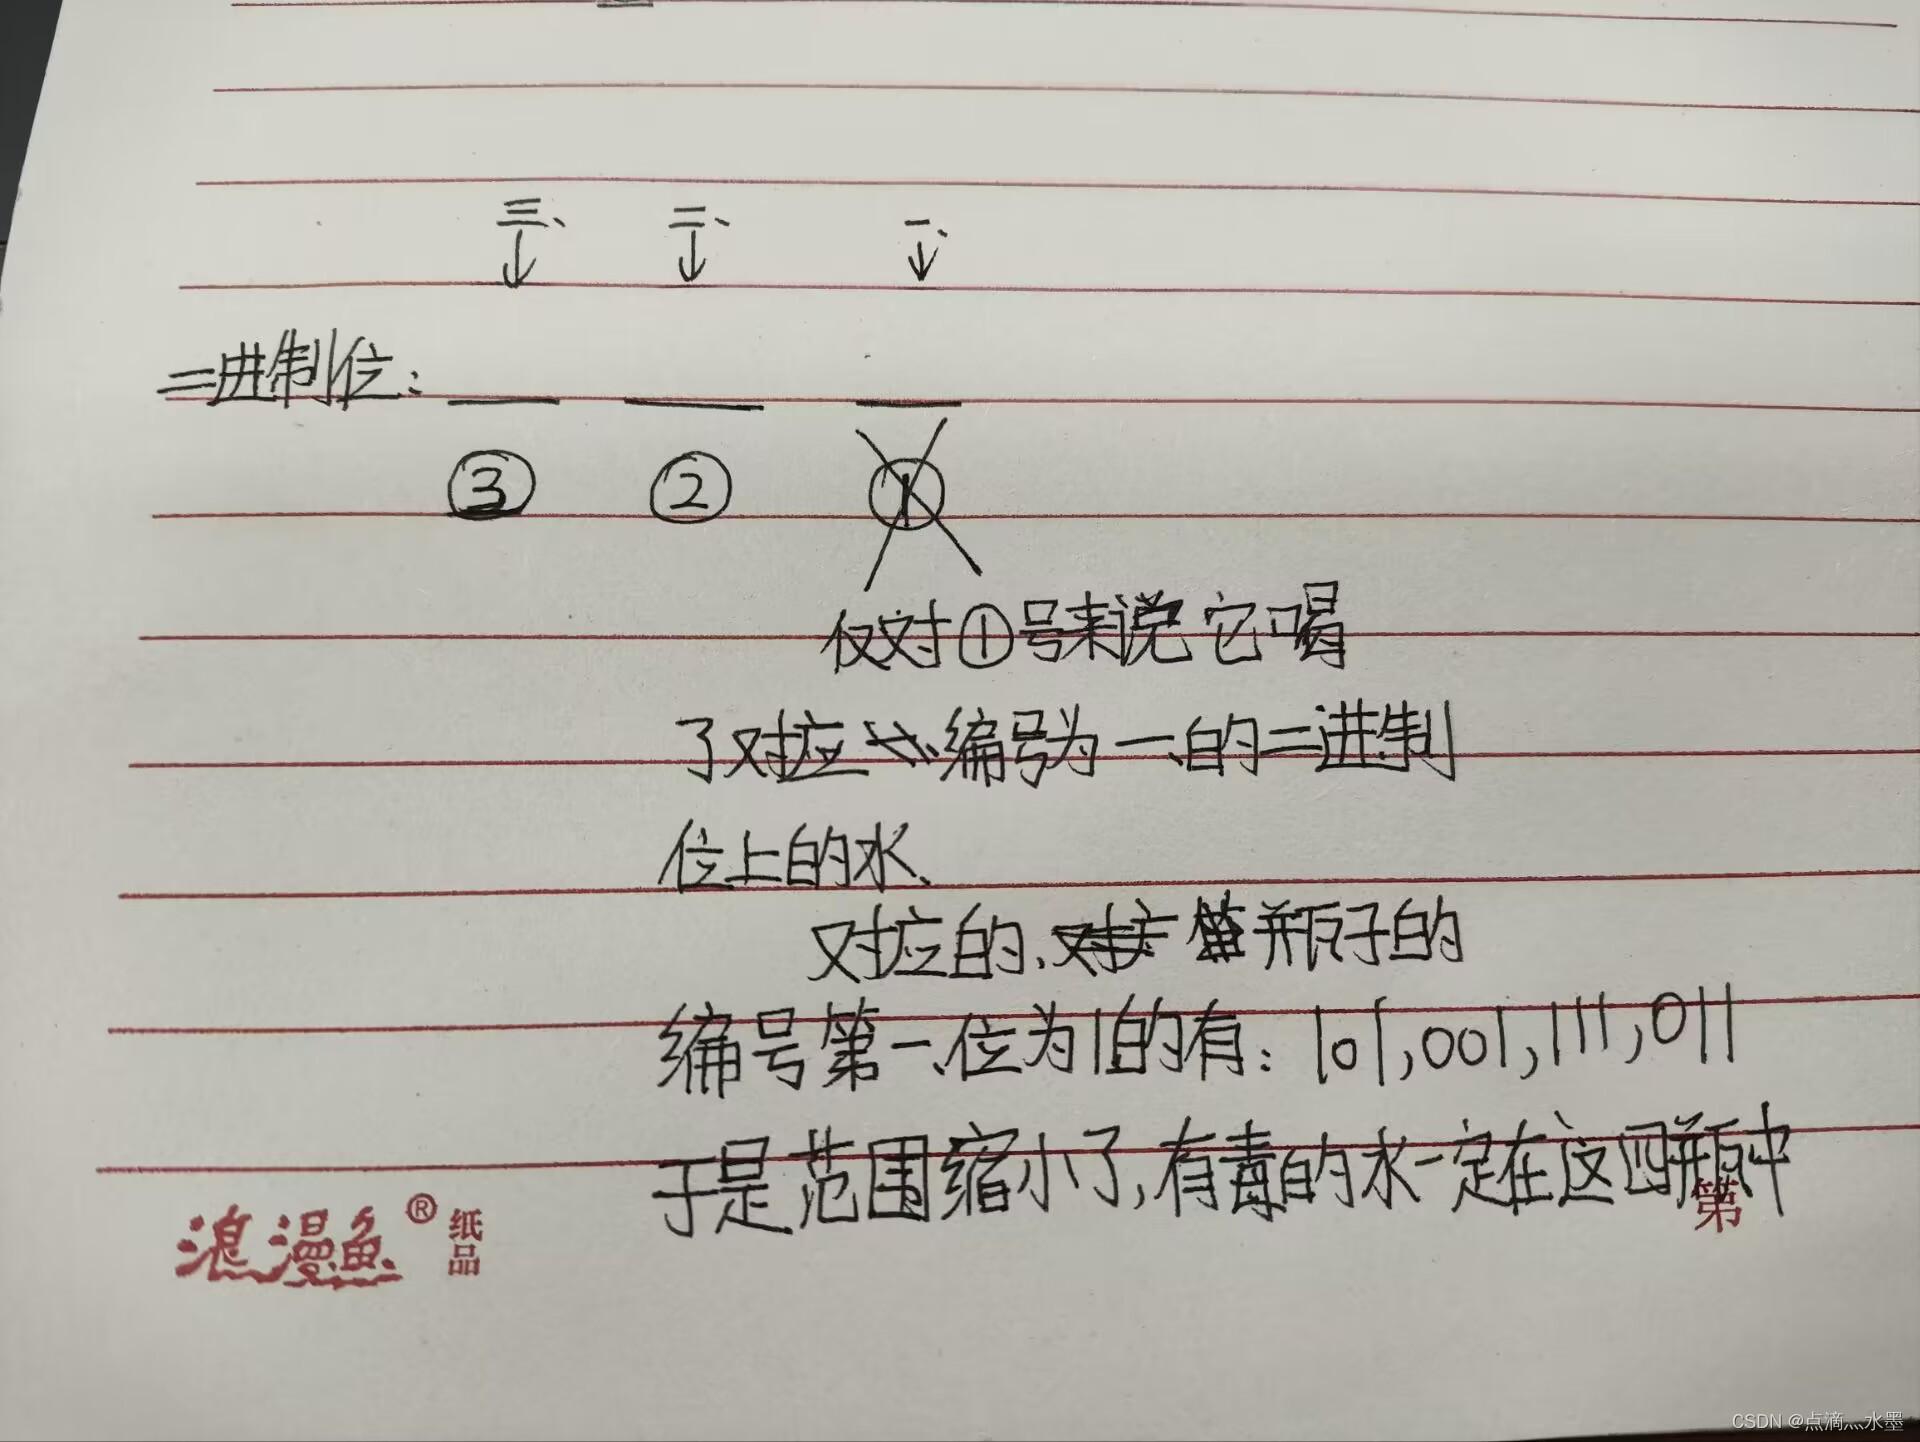 三、 二、 一、
二进制位:
③ ② ①
仅对①号来说它喝
了对应编号为一、的二进制
位上的水、
对应的、瓶子的
编号第一、位为1的有：101,001,111,011
于是范围缩小了,有毒的水一定在这四瓶中
第
浪漫鱼®纸品
CSDN @点滴灬水墨